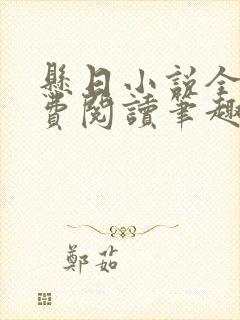 懸日小說全
費閱讀筆趣
鄭茹